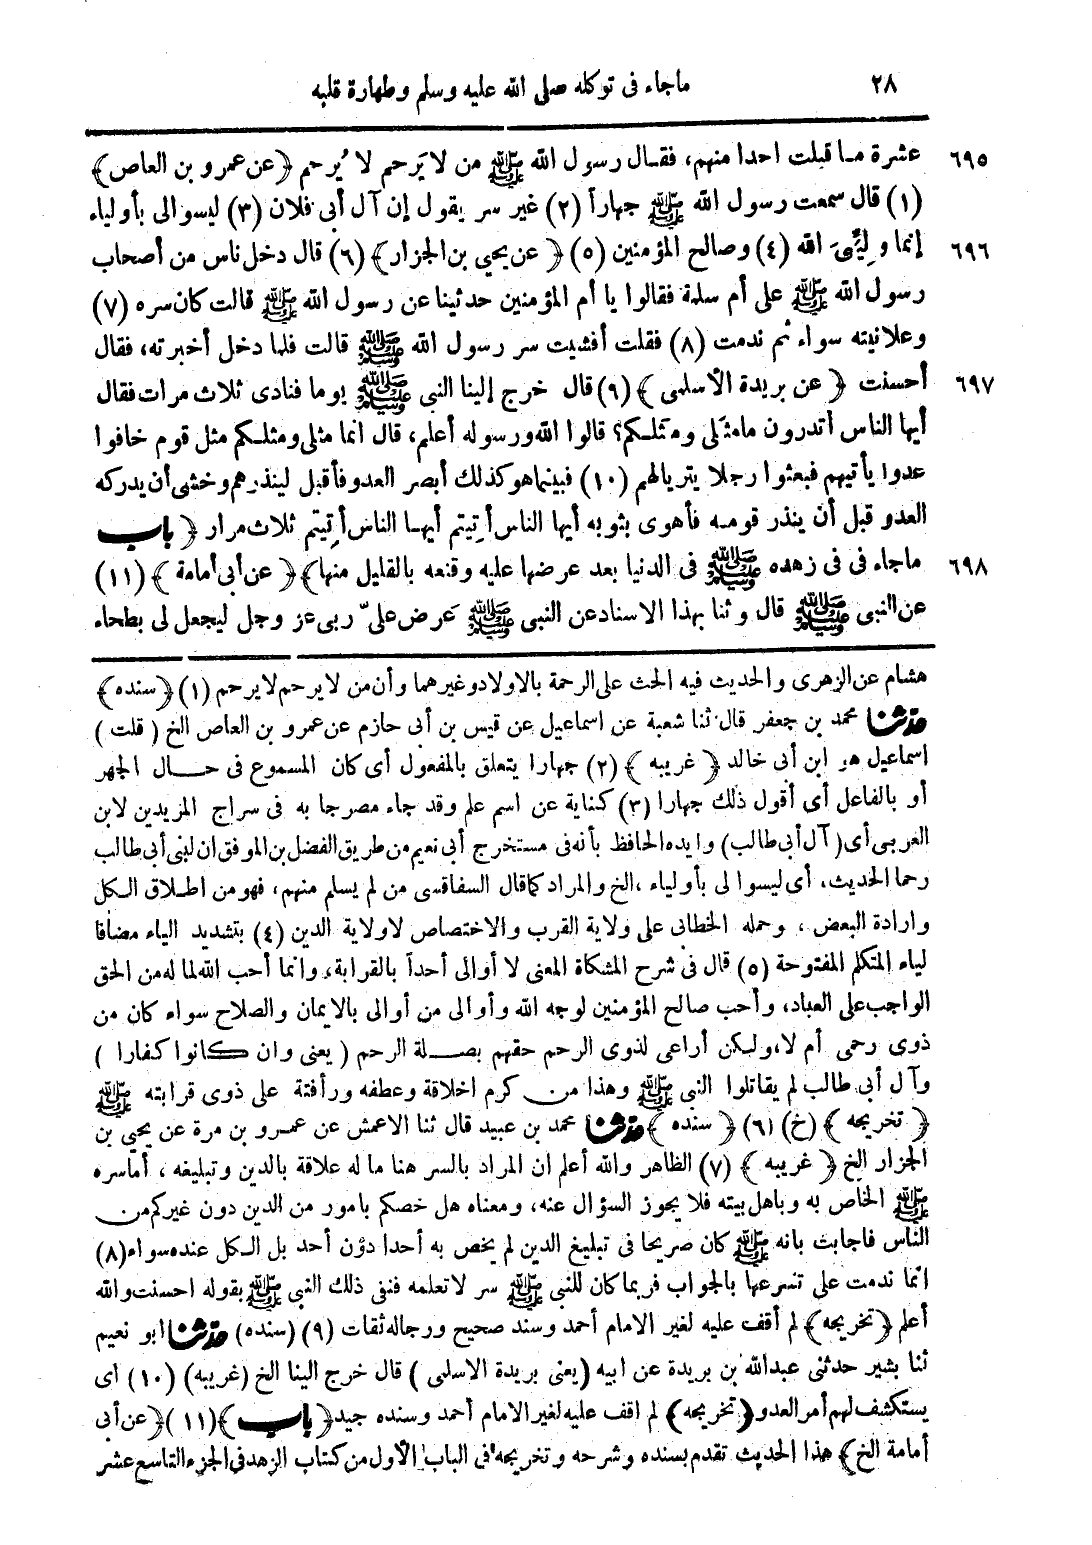 ٢٨ ماجاء فى توكله صلى الله عليه وسلم وطهارة قلبه
٦٩٥ عشرة ما قبلت احدا منهم، فقال رسول الله ﷺ من لا يَرحم لا يُرحم ﴿عن عمرو بن العاص﴾
(١) قال سمعت رسول الله ﷺ جهاراً (٢) غير سر يقول إن آل أبى فلان (٣) ليسوا لى بأولياء
٦٩٦ إنما وَلِيِّىَ الله (٤) وصالح المؤمنين (٥) ﴿عن يحيى بن الجزار﴾ (٦) قال دخل ناس من أصحاب
رسول الله ﷺ على أم سلمة فقالوا يا أم المؤمنين حدثينا عن رسول الله ﷺ قالت كان سره (٧)
وعلانيته سواء ثم ندمت (٨) فقلت أفشيت سر رسول الله ﷺ قالت فلما دخل أخبرته، فقال
٦٩٧ أحسنت ﴿عن بريدة الأسلمى﴾ (٩) قال خرج إلينا النبى ﷺ يوما فنادى ثلاث مرات فقال
أيها الناس أتدرون مامثَلى ومثلكم؟ قالوا الله ورسوله أعلم، قال انما مثلى ومثلكم مثل قوم خافوا
عدوا يأتيهم فبعثوا رجلا يتريا لهم (١٠) فبينما هو كذلك أبصر العدو فأقبل لينذرهم وخشى أن يدركه
العدو قبل أن ينذر قومه فأهوى بثوبه أيها الناس أُتِيتم أيها الناس أُتِيتم ثلاث مرار ﴿باب
٦٩٨ ماجاء فى فى زهده ﷺ فى الدنيا بعد عرضها عليه وقنعه بالقليل منها﴾ ﴿عن أبى أمامة﴾ (١١)
عن النبى ﷺ قال وثنا بهذا الاسناد عن النبى ﷺ عَرض علىّ ربى عز وجل ليجعل لى بطحاء
هشام عن الزهرى والحديث فيه الحث على الرحمة بالاولاد وغيرهما وأن من لا يرحم لا يرحم (١) ﴿سنده﴾
حدثنا محمد بن جعفر قال ثنا شعبة عن اسماعيل عن قيس بن أبى حازم عن عمرو بن العاص الخ (قلت)
اسماعيل هو ابن أبى خالد ﴿غريبه﴾ (٢) جهارا يتعلق بالمفعول أى كان المسموع فى حال الجهر
أو بالفاعل أى أقول ذلك جهارا (٣) كناية عن اسم علم وقد جاء مصرحا به فى سراج المريدين لابن
العربى أى (آل أبى طالب) وايده الحافظ بأنه فى مستخرج أبى نعيم من طريق الفضل بن الموفق ان لبنى أبى طالب
رحما الحديث، أى ليسوا لى بأولياء، الخ والمراد كما قال السفاقسى من لم يسلم منهم، فهو من اطلاق الكل
وارادة البعض، وحمله الخطابى على ولاية القرب والاختصاص لا ولاية الدين (٤) بتشديد الياء مضافا
لياء المتكلم المفتوحة (٥) قال فى شرح المشكاة المعنى لا أوالى أحداً بالقرابة، وانما أحب الله لما له من الحق
الواجب على العباد، وأحب صالح المؤمنين لوجه الله وأوالى من أوالى بالايمان والصلاح سواء كان من
ذوى رحمى أم لا، ولكن أراعى لذوى الرحم حقهم بصلة الرحم (يعنى وان كانوا كفارا)
وآل أبى طالب لم يقاتلوا النبى ﷺ وهذا من كرم اخلاقة وعطفه ورأفتة على ذوى قرابته ﷺ
﴿تخريجه﴾ (خ) (٦) ﴿سنده﴾ حدثنا محمد بن عبيد قال ثنا الاعمش عن عمرو بن مرة عن يحيى بن
الجزار الخ ﴿غريبه﴾ (٧) الظاهر والله أعلم ان المراد بالسر هنا ما له علاقة بالدين وتبليغه، أما سره
ﷺ الخاص به وباهل بيته فلا يجوز السؤال عنه، ومعناه هل خصكم بامور من الدين دون غيركم من
الناس فاجابت بانه ﷺ كان صريحا فى تبليغ الدين لم يخص به أحدا دون أحد بل الكل عنده سواء (٨)
انما ندمت على تسرعها بالجواب فربما كان للنبى ﷺ سر لا تعلمه فنفى ذلك النبى ﷺ بقوله احسنت والله
أعلم ﴿تخريجه﴾ لم أقف عليه لغير الامام أحمد وسند صحيح ورجاله ثقات (٩) (سنده) حدثنا ابو نعيم
ثنا بشير حدثنى عبدالله بن بريدة عن ابيه (يعنى بريدة الاسلمى) قال خرج الينا الخ (غريبه) (١٠) اى
يستكشف لهم أمر العدو ﴿تخريجه﴾ لم اقف عليه لغير الامام أحمد وسنده جيد ﴿باب﴾ (١١) ﴿عن أبى
أمامة الخ﴾ هذا الحديث تقدم بسنده وشرحه وتخريجه فى الباب الأول من كتاب الزهد فى الجزء التاسع عشر